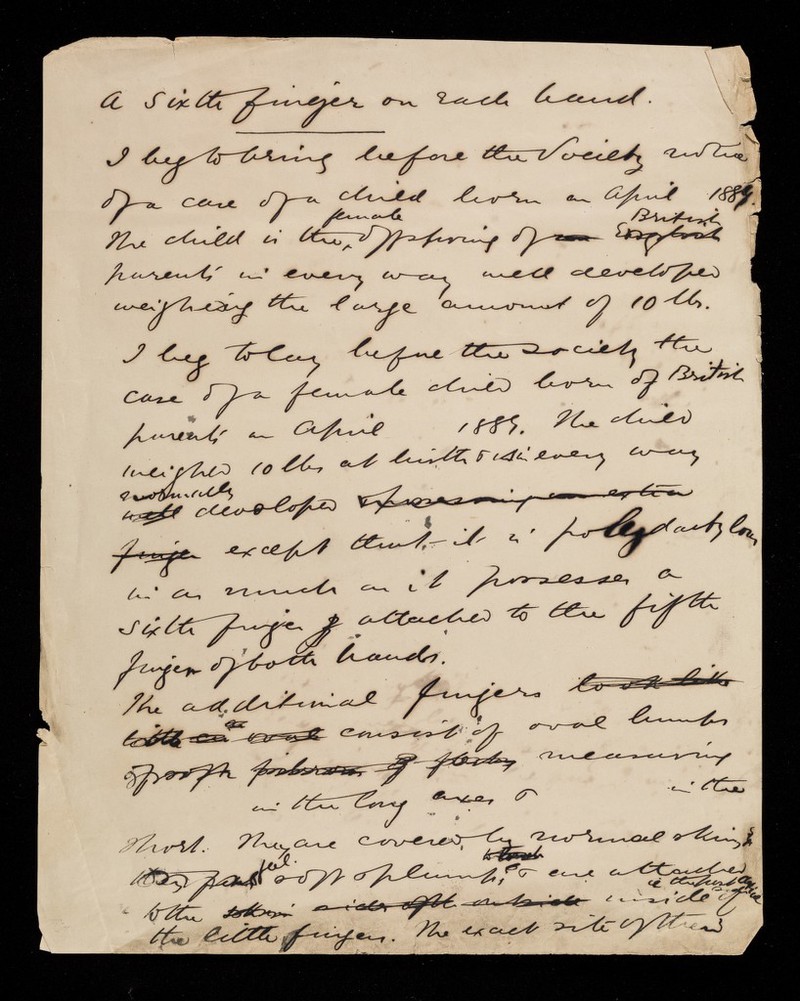 A sixth finger on each hand.
I beg to bring before the Society notice
of a case of a child born on April 1889
female British
The child is the offspring of an English
parents in every way well developed
weighing the large amount of 10 lbs.
I beg to lay before the Society the
case of a female child born of British
parents on April 1889. The child
weighed 10 lbs at birth & is in every way
normally
well developed possessing an extra
finger except that it is polydactylous
in as much as it possesses a
sixth finger attached to the fifth
finger of both hands.
The additional fingers look like
little oval consist of oval lumps
of soft fibrous & fleshy measuring
in the long axes & in the
short. They are covered by normal skin &
feel
soft & plump, & are attached
to touch
to the skin side of the outside inside of
the little fingers. The exact site of them